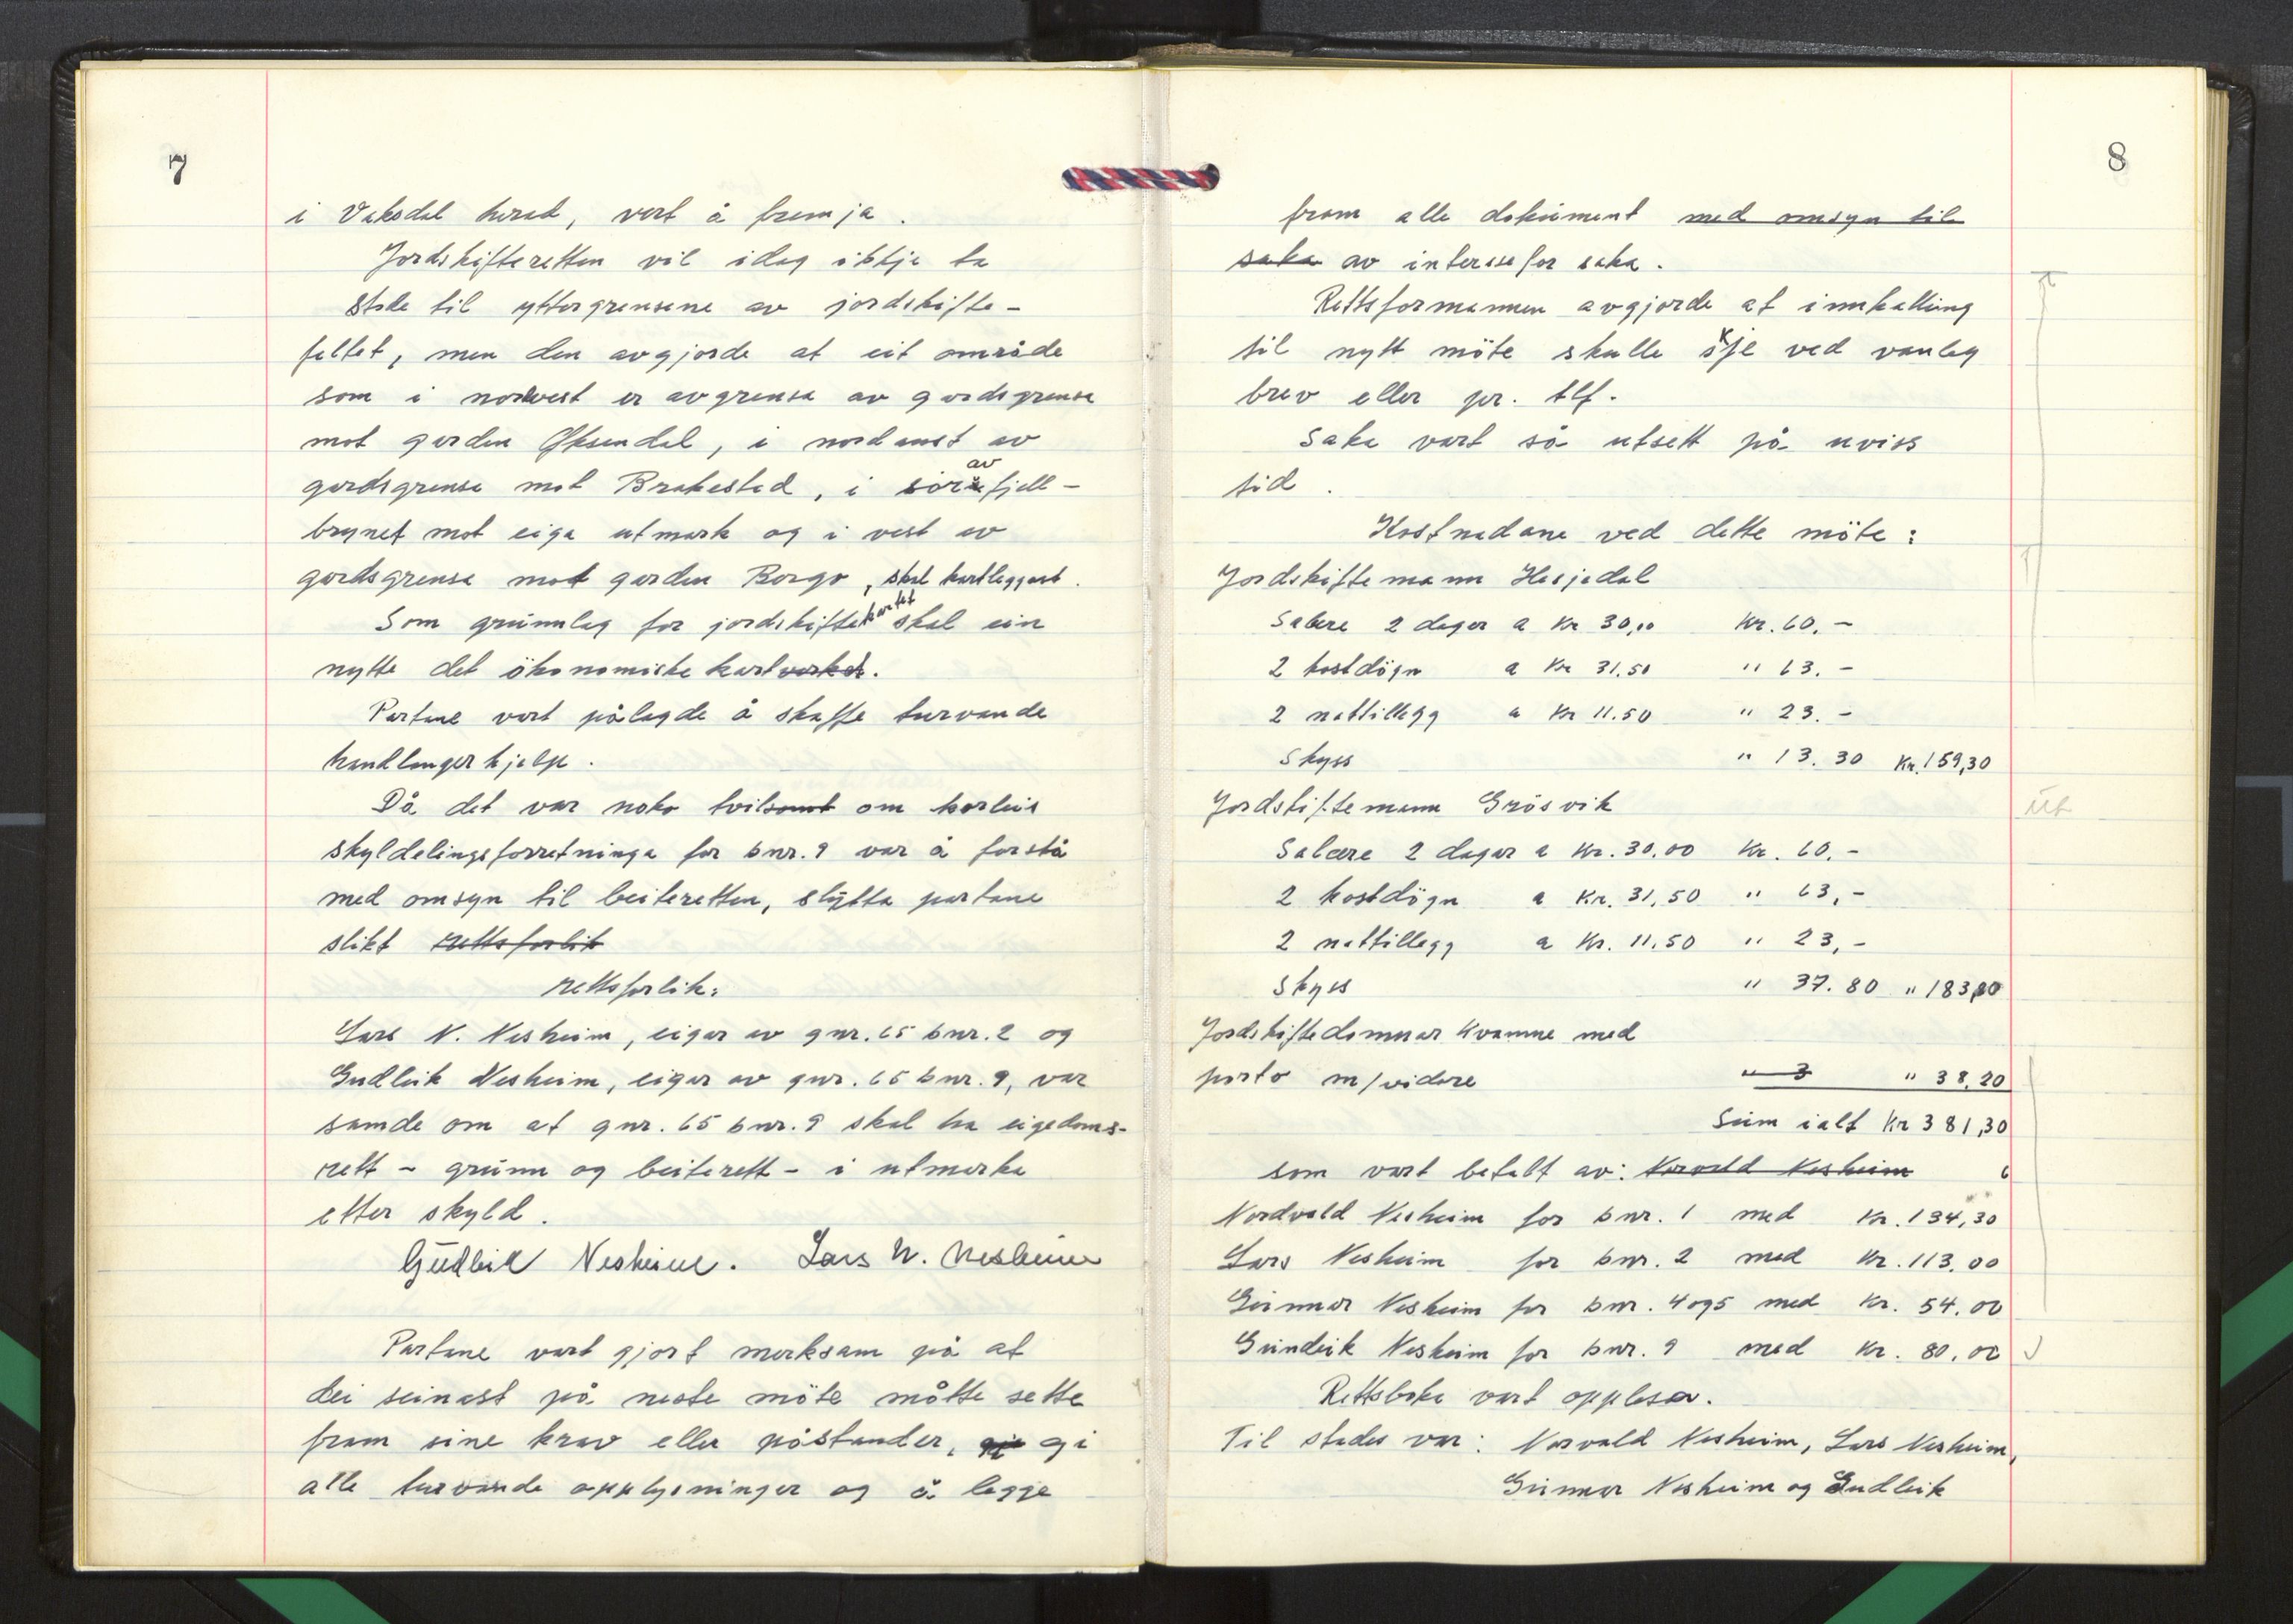 7
i Vaksdal herad, vert å fremja.
Jordskifteretten vil idag ikkje ta
stode til yttergrensene av jordskifte-
feltet, men den avgjorde at eit område
som i nordvest er avgrensa av gardsgrensa
mot garden Øksendal, i nordaust av
gardsgrensa mot Brakestad, i sør av fjell-
brynet mot eiga utmark og i vest av
gardsgrensa mot garden Borgo, skal kartleggast.
Som grunnlag for jordskiftekartet skal ein
nytte det økonomiske kartverket.
Partane vart pålagde å skaffe turvande
handlangerhjelp.
Då det var noko tvilsamt om korleis
skyldelingsforretninga for bnr. 9 var å forstå
med omsyn til beiteretten, slutta partane
slikt rettsforlik
rettsforlik:
Lars N. Nesheim, eigar av gnr. 65 bnr. 2 og
Gudleik Nesheim, eigar av gnr. 65 bnr. 9, var
samde om at gnr. 65 bnr. 9 skal ha eigedoms-
rett - grunn og beiterett - i utmarka
etter skyld.
Gudleik Nesheim. Lars N. Nesheim
Partane vart gjort merksam på at
dei seinast på neste möte måtte sette
fram sine krav eller påstander, gi
alle turvande opplysninger og å legge
8
fram alle dokument med omsyn til
saka av interesse for saka.
Rettsformannen avgjorde at innkalling
til nytt möte skulle skje ved vanleg
brev eller pr. tlf.
Saka vart så utsett på uviss
tid.
Kostnadane ved dette möte:
Jordskiftemann Hesjedal
Salære 2 dager a kr 30,00 kr. 60.-
2 kostdögn a kr 31.50 " 63.-
2 nattillegg a kr 11.50 " 23.-
Skyss " 13.30 kr. 159,30
Jordskiftemann Grösvik
Salære 2 dagar a kr. 30.00 kr. 60.-
2 kostdögn a kr. 31,50 " 63,-
2 nattillegg a kr. 11.50 " 23,-
Skyss " 37.80 " 183,80
Ut
Jordskiftedommar Kvamme med
porto m/vidare " 3 " 38,20
Sum ialt kr 381,30
som vart betalt av: Norvald Nesheim
Nordvald Nesheim for bnr. 1 med kr. 134,30
Lars Nesheim for bnr. 2 med kr. 113.00
Gunnar Nesheim for bnr. 4 og 5 med kr. 54.00
Gundleik Nesheim for bnr. 9 med kr. 80,00
Rettsboka vart opplesen.
Til stades var: Norvald Nesheim, Lars Nesheim,
Gunnar Nesheim og Gudleik